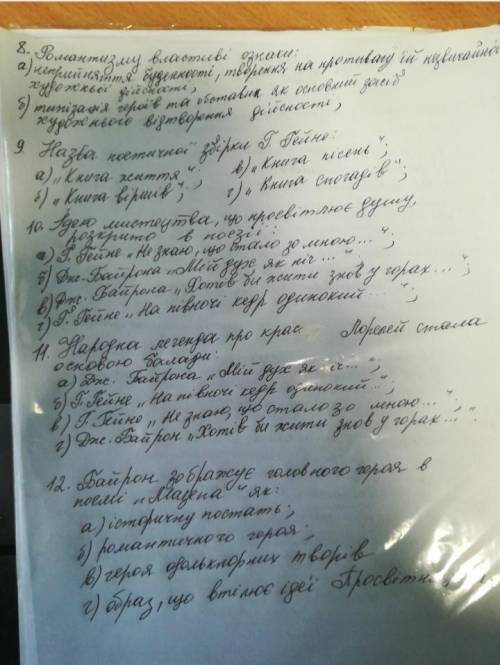 8. Романтизму властиві ознаки:
а) неприйняття буденності, творення на противагу їй незвичайної
художньої дійсності;
б) типізація героїв та обставин як основний засіб
художнього відтворення дійсності;
9. Назва поетичної збірки Г. Гейне:
а) „Книга життя"; в) „Книга пісень";
б) „Книга віршів"; г) „Книга спогадів";
10. Ідею мистецтва, що просвітлює душу,
розкрито в поезії:
а) Г. Гейне „Не знаю, що стало зо мною...";
б) Дж. Байрона „Мій дух як ніч...";
в) Дж. Байрона „Хотів би жити знов у горах...";
г) Г. Гейне „На півночі кедр одинокий...";
11. Народна легенда про крас Лорелей стала
основою балади:
а) Дж. Байрона „Мій дух як ніч...";
б) Г. Гейне „На півночі кедр одинокий...";
в) Г. Гейне „Не знаю, що стало зо мною...";
г) Дж. Байрон „Хотів би жити знов у горах..."
12. Байрон зображує головного героя в
поемі „Мазепа" як:
а) історичну постать;
б) романтичного героя;
в) героя фольклорних творів
г) образ, що втілює ідеї